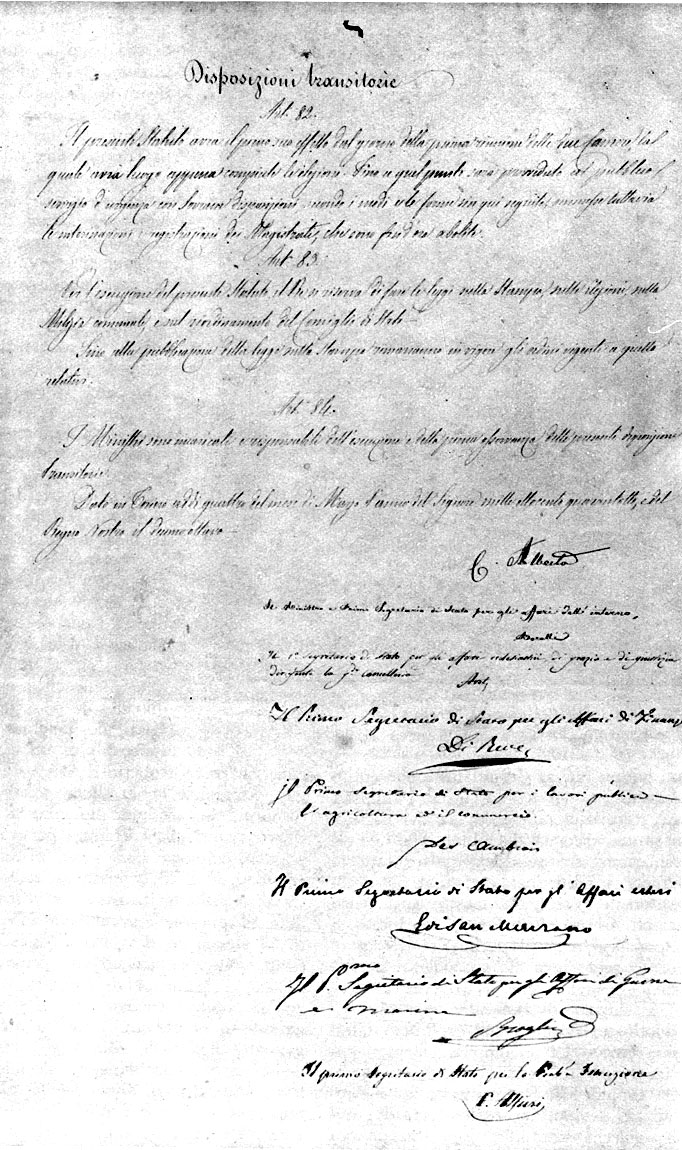 Disposizioni transitorie
Art. 82.
Il presente Statuto avrà il primo suo effetto dal giorno della prima riunione delle due Camere, la
quale avrà luogo appena compiute le elezioni. Fino a quel punto sarà provveduto al pubblico
servizio d'urgenza con Sovrane disposizioni secondo i modi e le forme sin qui seguite, ommesse tuttavia
le interinazioni e registrazioni dei Magistrati, che sono fin d'ora abolite.
Art. 83.
Per l'esecuzione del presente Statuto il Re si riserva di fare le leggi sulla Stampa, sulle elezioni, sulla
Milizia comunale, e sul riordinamento del Consiglio di Stato.
Sino alla pubblicazione della legge sulla Stampa rimarranno in vigore gli ordini vigenti a quella
relativi.
Art. 84.
I Ministri sono incaricati e responsabili dell'esecuzione e della piena osservanza delle presenti disposizioni
transitorie.
Dato in Torino addì quattro del mese di Marzo l'anno del Signore mille ottocento quarantotto, e del
Regno Nostro il decimo ottavo.
C. Alberto
Il Ministro e Primo Segretario di Stato per gli affari dell'interno,
Borelli
Il 1° Segretario di Stato per gli affari ecclesiastici di grazia e di giustizia
dirigente la gde cancelleria
Avet,
Il Primo Segretario di Stato per gli Affari di Finanze
Di Revel
Il Primo Segretario di Stato per i lavori pubblici
l'agricoltura ed il commercio.
Des Ambrois
Il Primo Segretario di Stato per gl'Affari esteri
E di San Marzano
Il P.mo Segretario di Stato per gli Affari di Guerra
e marina
Broglia
Il primo Segretario di Stato per la Pub.a Istruzione
C. Alfieri